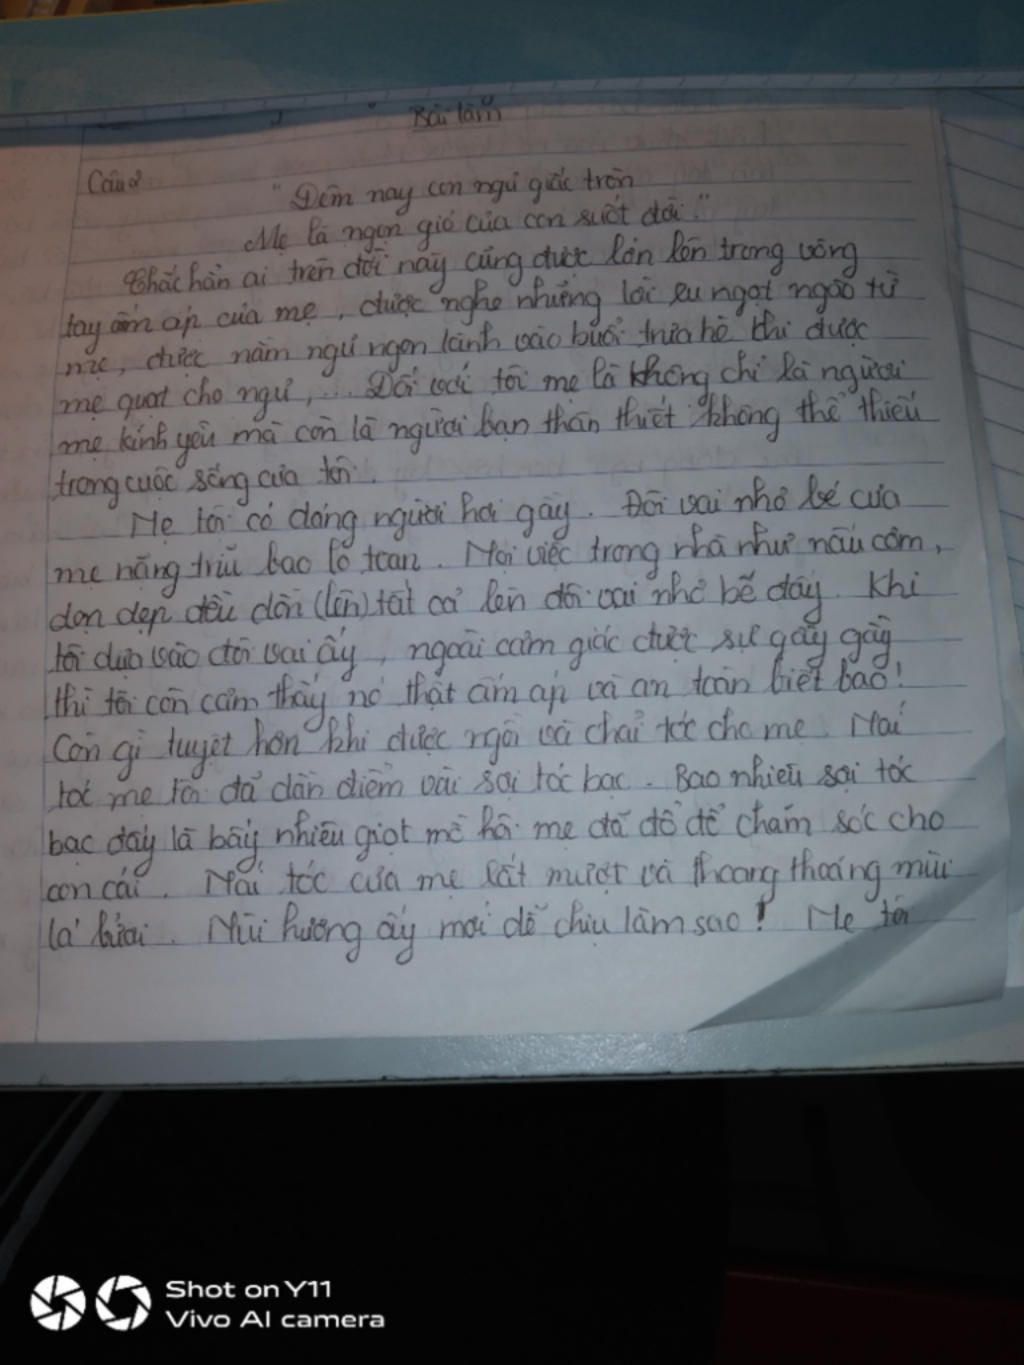 Bài làm
Câu 2
"Đêm nay con ngủ giấc tròn
Mẹ là ngọn gió của con suốt đời."
Chắc hẳn ai trên đời này cũng được lớn lên trong vòng
tay ấm áp của mẹ, được nghe những lời ru ngọt ngào từ
mẹ, được nằm ngủ ngon lành vào buổi trưa hè khi được
mẹ quạt cho ngủ,... Đối với tôi mẹ là không chỉ là người
mẹ kính yêu mà còn là người bạn thân thiết không thể thiếu
trong cuộc sống của tôi.
Mẹ tôi có dáng người hơi gầy. Đôi vai nhỏ bé của
mẹ nặng trĩu bao lo toan. Mọi việc trong nhà như nấu cơm,
dọn dẹp đều dồn (lên) tất cả lên đôi vai nhỏ bé đấy. Khi
tôi dựa vào đôi vai ấy, ngoài cảm giác được sự gầy gầy
thì tôi còn cảm thấy nó thật ấm áp và an toàn biết bao!
Còn gì tuyệt hơn khi được ngồi và chải tóc cho mẹ. Mái
tóc mẹ tôi đã dần điểm vài sợi tóc bạc. Bao nhiêu sợi tóc
bạc đấy là bấy nhiêu giọt mồ hôi mẹ đã đổ để chăm sóc cho
con cái. Mái tóc của mẹ rất mượt và thoang thoáng mùi
lá bưởi. Mùi hương ấy mới dễ chịu làm sao! Mẹ tôi
Shot on Y11
Vivo AI camera